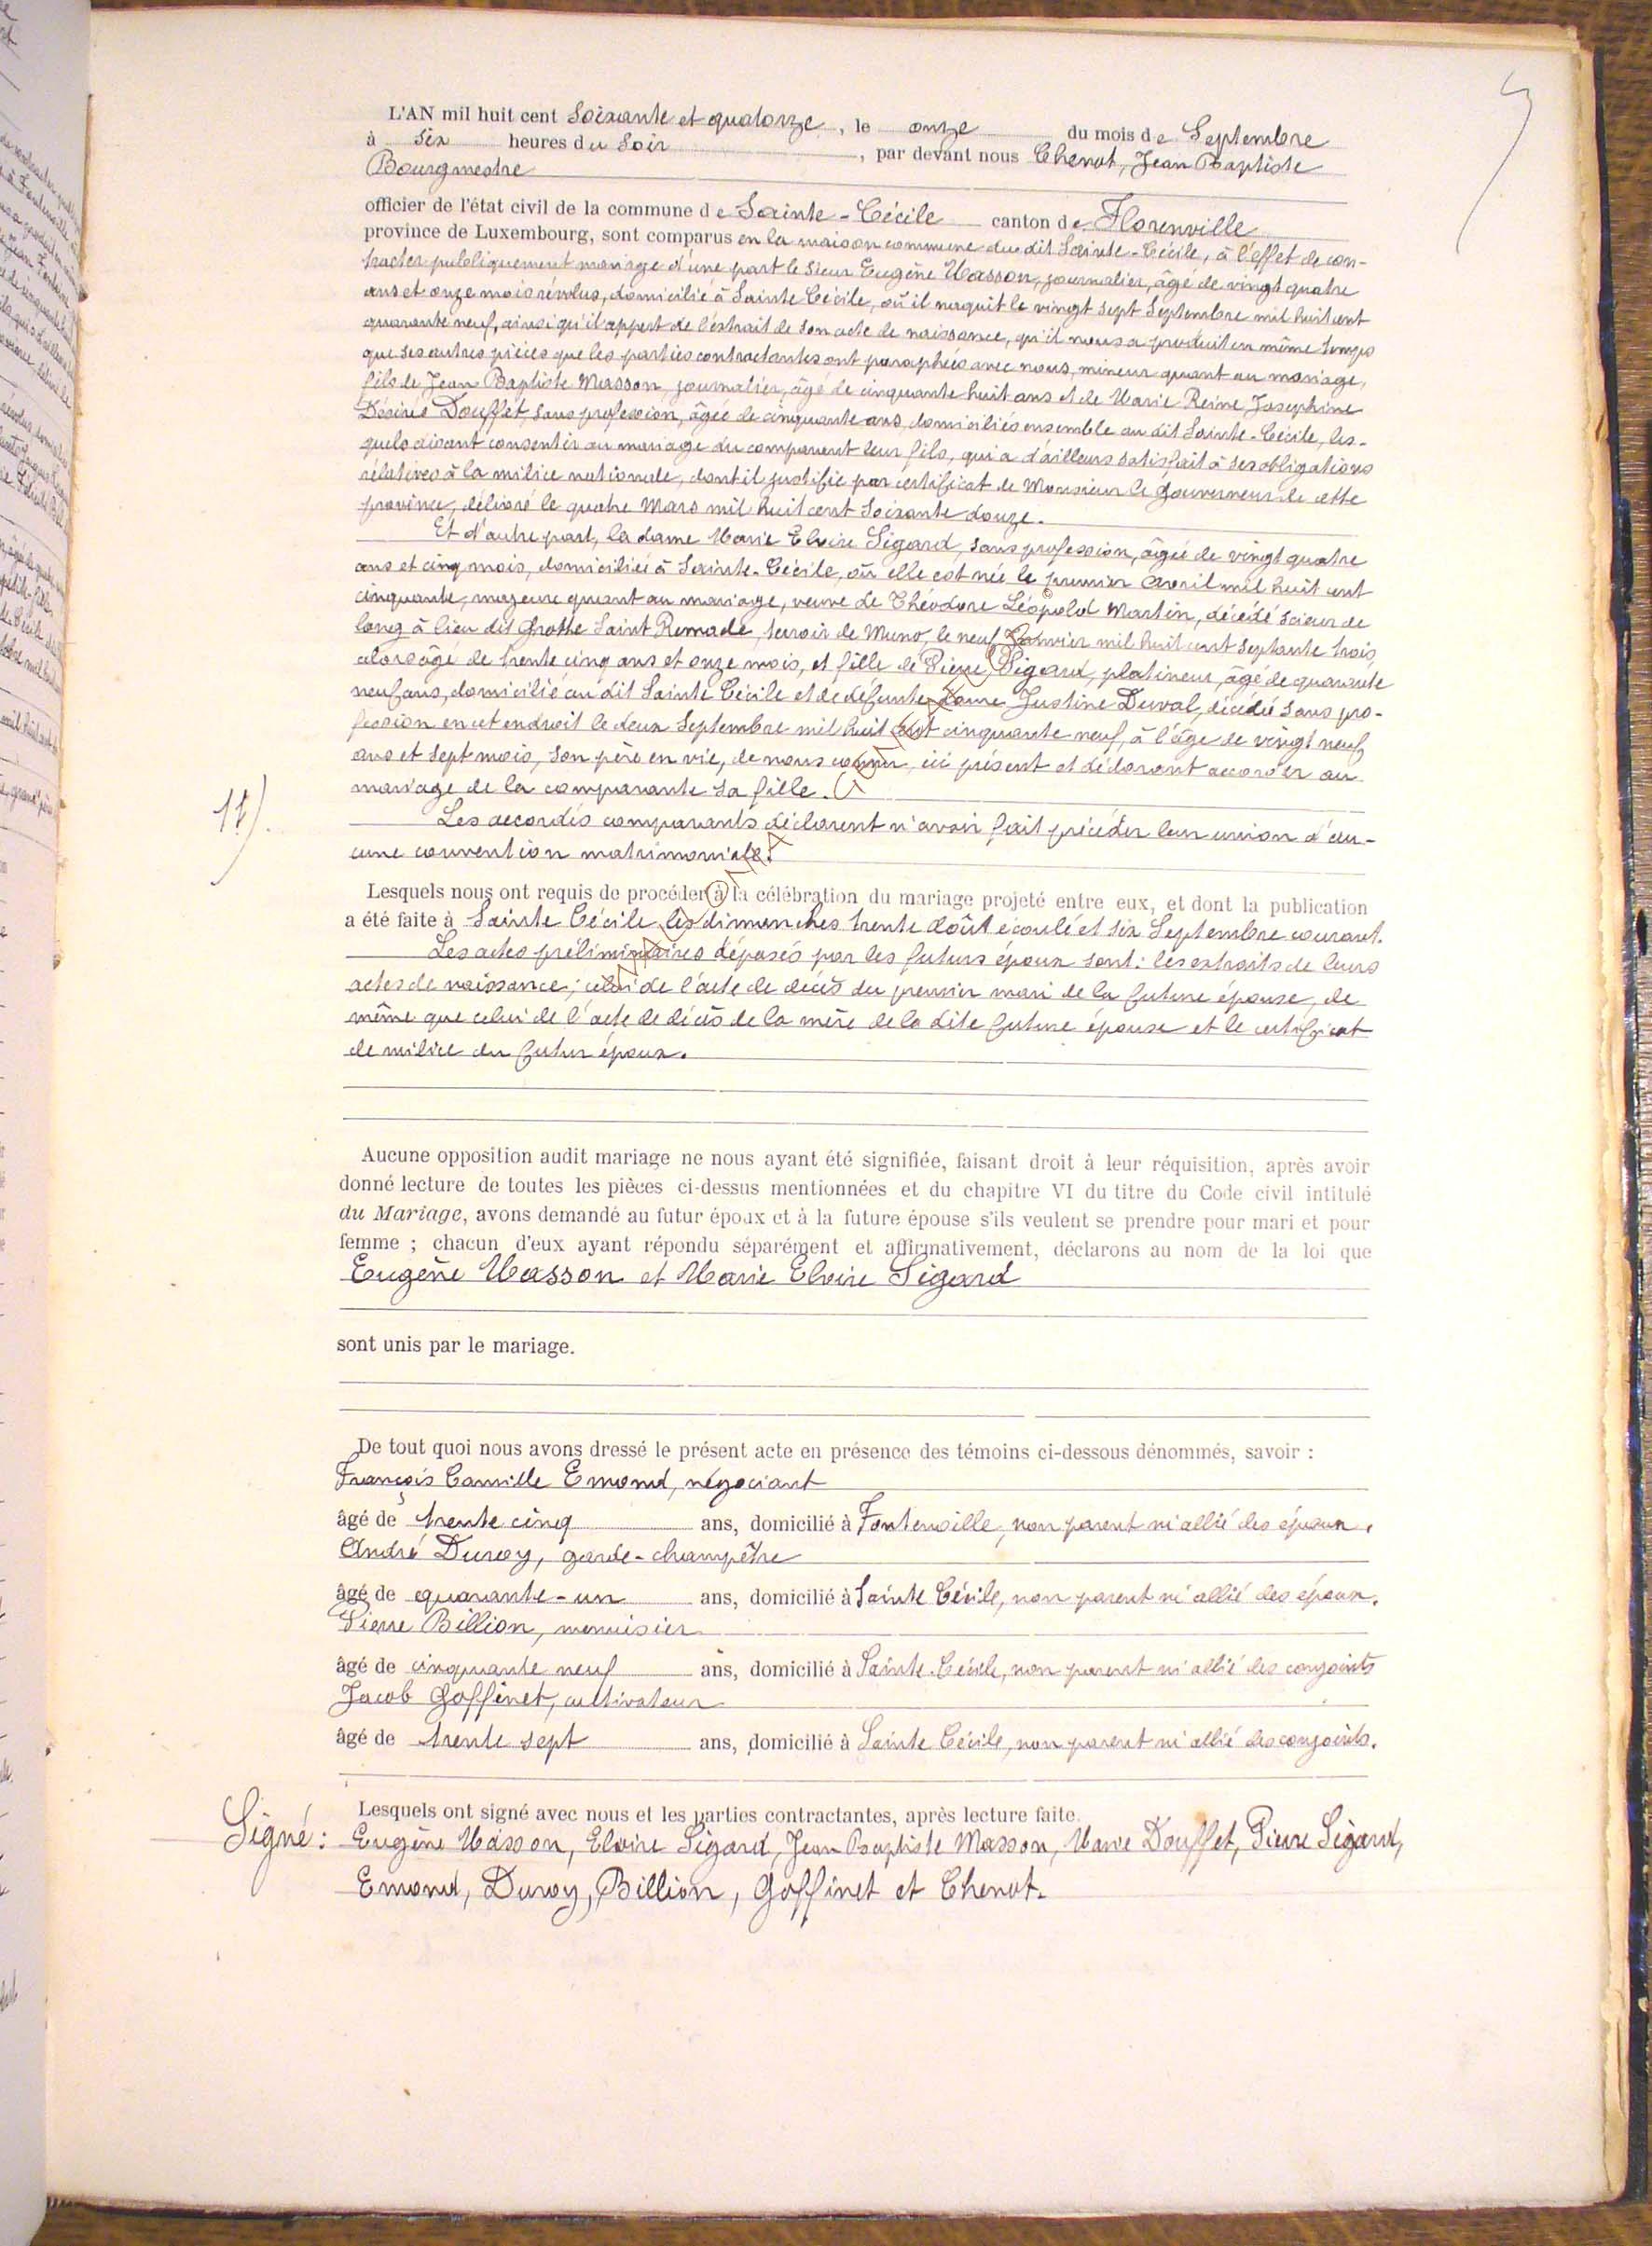 L'AN mil huit cent Soixante et quatorze, le onze du mois de Septembre
à six heures du Soir, par devant nous Chenot, Jean Baptiste
Bourgmestre
officier de l'état civil de la commune de Sainte-Cécile canton de Florenville
province de Luxembourg, sont comparus en la maison commune du dit Sainte-Cécile, à l'effet de con-
tracter publiquement mariage d'une part le sieur Eugène Masson, journalier, âgé de vingt quatre
ans et onze mois révolus, domicilié à Sainte Cécile, où il naquit le vingt sept Septembre mil huit cent
quarante neuf, ainsi qu'il appert de l'extrait de son acte de naissance, qu'il nous a produit en même temps
que ses autres pièces que les parties contractantes ont paraphées avec nous, mineur quant au mariage,
fils de Jean Baptiste Masson, journalier, âgé de cinquante huit ans et de Marie Reine Josephine
Désirée Douffet, sans profession, âgée de cinquante ans, domiciliés ensemble au dit Sainte-Cécile, les-
quels disant consentir au mariage du comparant leur fils, qui a d'ailleurs satisfait à ses obligations
rélatives à la milice nationale, dont il justifie par certificat de Monsieur le Gouverneur de cette
province, délivré le quatre Mars mil huit cent soixante douze.
Et d'autre part, la dame Marie Elvire Sigard, sans profession, âgée de vingt quatre
ans et cinq mois, domiciliée à Sainte-Cécile, où elle est née le premier Avril mil huit cent
cinquante, majeure quant au mariage, veuve de Théodore Léopold Martin, décédé scieur de
long à lieu dit Grotte Saint Remacle, terroir de Muno, le neuf Janvier mil huit cent septante trois,
alors âgé de trente cinq ans et onze mois, et fille de Pierre Sigard, platineur, âgé de quarante
neuf ans, domicilié au dit Sainte Cécile et de défunte dame Justine Duval, décédée sans pro-
fession en cet endroit le deux Septembre mil huit cent cinquante neuf, à l'âge de vingt neuf
ans et sept mois, son père en vie, de nous connu, ici présent et déclarant accorder au
mariage de la comparante sa fille.
11).
Les accordés comparants déclarent n'avoir fait précéder leur union d'au-
cune convention matrimoniale.
Lesquels nous ont requis de procéder à la célébration du mariage projeté entre eux, et dont la publication
a été faite à Sainte Cécile les dimanches trente août écoulé et six Septembre courant.
Les actes préliminaires déposés par les futurs époux sont: les extraits de leurs
actes de naissance; celui de l'acte de décès du premier mari de la future épouse, de
même que celui de l'acte de décès de la mère de la dite future épouse et le certificat
de milice du futur époux.
Aucune opposition audit mariage ne nous ayant été signifiée, faisant droit à leur réquisition, après avoir
donné lecture de toutes les pièces ci-dessus mentionnées et du chapitre VI du titre du Code civil intitulé
du Mariage, avons demandé au futur époux et à la future épouse s'ils veulent se prendre pour mari et pour
femme ; chacun d'eux ayant répondu séparément et affirmativement, déclarons au nom de la loi que
Eugène Masson et Marie Elvire Sigard
sont unis par le mariage.
De tout quoi nous avons dressé le présent acte en présence des témoins ci-dessous dénommés, savoir :
François Camille Emond, négociant
âgé de trente cinq ans, domicilié à Fontenoille, non parent ni allié des époux,
André Duroy, garde-champêtre
âgé de quarante-un ans, domicilié à Sainte Cécile, non parent ni allié des époux,
Pierre Billion, menuisier
âgé de cinquante neuf ans, domicilié à Sainte-Cécile, non parent ni allié des conjoints
Jacob Goffinet, cultivateur
âgé de trente sept ans, domicilié à Sainte Cécile, non parent ni allié des conjoints.
Lesquels ont signé avec nous et les parties contractantes, après lecture faite.
Signé: Eugène Masson, Elvire Sigard, Jean Baptiste Masson, Marie Douffet, Pierre Sigard,
Emond, Duroy, Billion, Goffinet et Chenot.